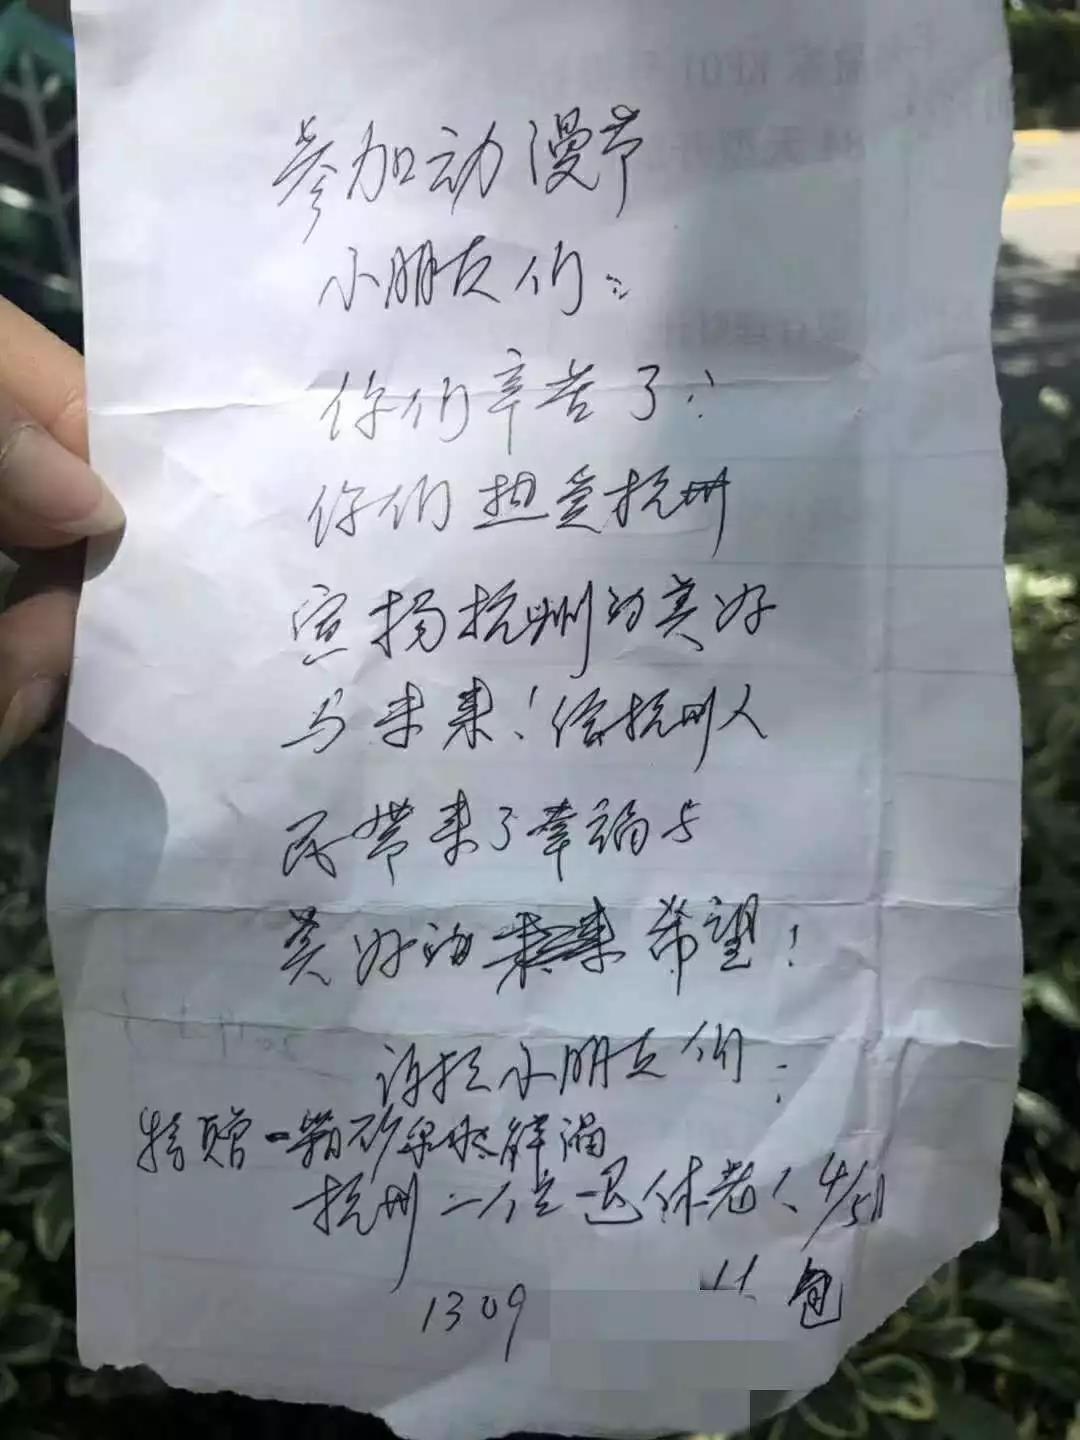 参加动漫节
小朋友们：
你们辛苦了！
你们热爱杭州
宣扬杭州的美好
与未来！给杭州人
民带来了幸福与
美好的希望！
谢谢小朋友们！
捐赠一箱矿泉水解渴
杭州一个位退休老人 4/5日
1309
包